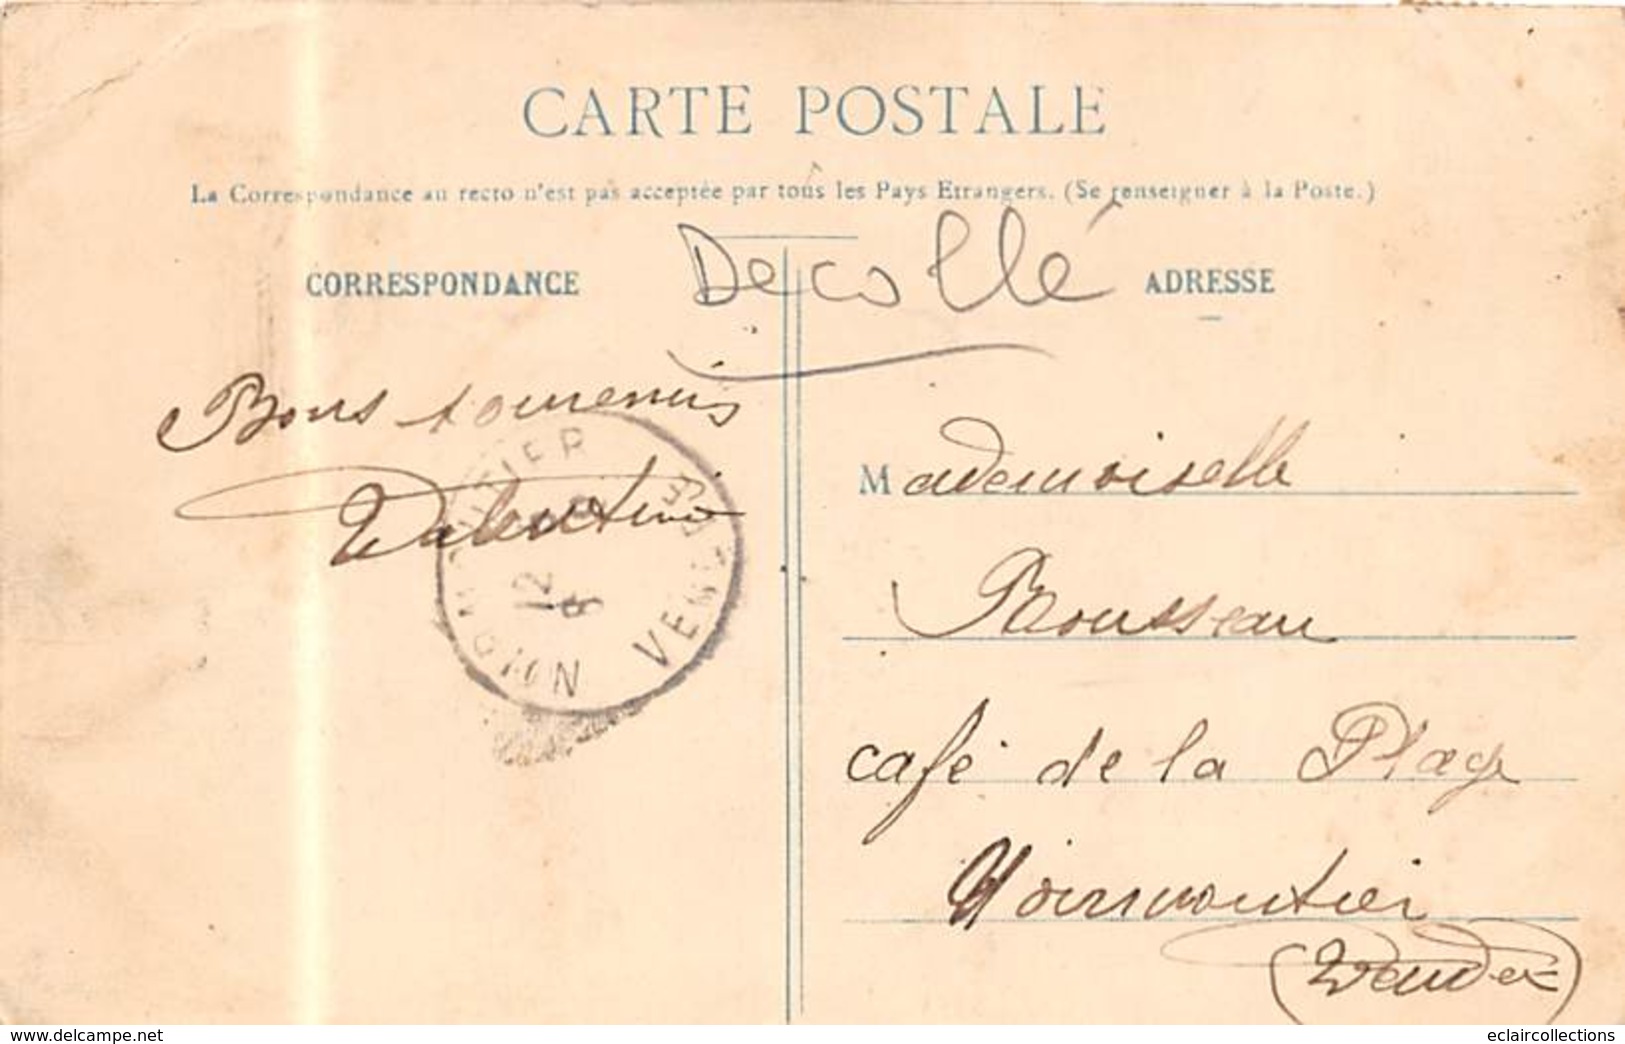 CARTE POSTALE
La Correspondance au recto n'est pas acceptée par tous les Pays Etrangers. (Se renseigner à la Poste.)
Decollé
CORRESPONDANCE
Bons souvenirs
Valentine
NOIRMOUTIER
VENDÉE
12
ADRESSE
Mademoiselle
Rousseau
café de la Plage
Noirmoutier
(Vendée)
www.delcampe.net
eclaircollections